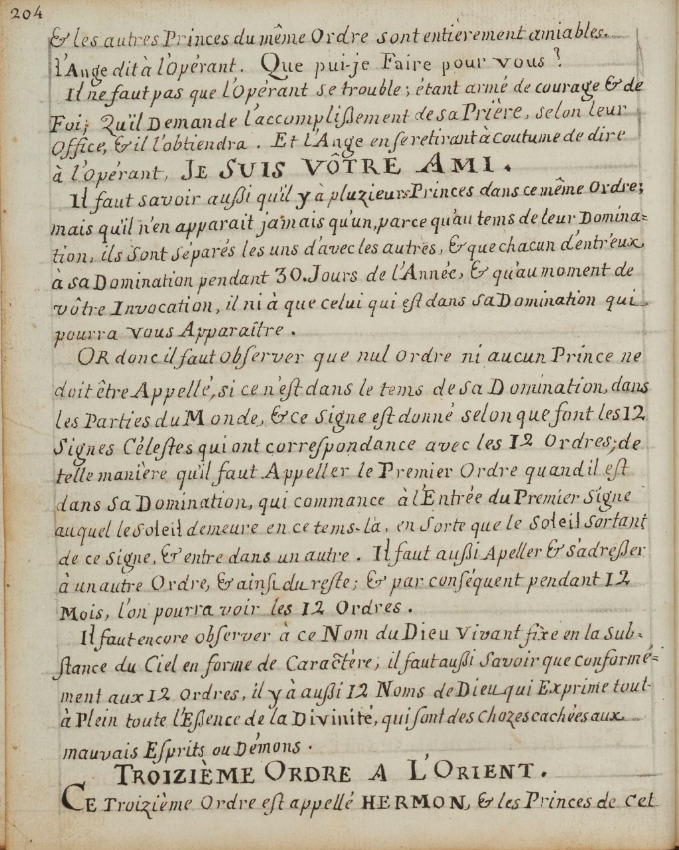 204
& les autres Princes du même Ordre sont entièrement amiables.
l'Ange dit à l'Opérant. Que pui-je Faire pour vous ?
Il ne faut pas que l'Opérant se trouble; étant armé de courage & de
Foi; Qu'il Demande l'accomplißement de sa Prière, selon leur
Office, & il l'obtiendra. Et l'Ange en se retirant à coutume de dire
à l'Opérant, JE SUIS VÔTRE AMI.
Il faut savoir außi qu'il y à pluzieurs Princes dans ce même Ordre;
mais qu'il n'en apparait jamais qu'un, parce qu'au tems de leur Domina=
tion, ils sont séparés les uns d'avec les autres, & que chacun d'entr'eux
à sa Domination pendant 30. Jours de l'Année, & qu'au moment de
vôtre Invocation, il ni à que celui qui est dans sa Domination qui
pourra vous Apparaître.
OR donc il faut observer que nul Ordre ni aucun Prince ne
doit être Appellé, si ce n'est dans le tems de sa Domination, dans
les Parties du Monde, & ce Signe est donné selon que font les 12
Signes Célestes qui ont correspondance avec les 12 Ordres; de
telle manière qu'il faut Appeller le Premier Ordre quand il est
dans sa Domination, qui commance à l'Entrée du Premier Signe
auquel le Soleil demeure en ce tems-là, en sorte que le Soleil sortant
de ce Signe, & entre dans un autre. Il faut außi Apeller & s'adreßer
à un autre Ordre, & ainsi du reste; & par conséquent pendant 12
Mois, l'on pourra voir les 12 Ordres.
Il faut encore observer à ce Nom du Dieu Vivant fixe en la Sub-
stance du Ciel en forme de Caractère; il faut außi savoir que conformé=
ment aux 12 Ordres, il y à außi 12 Noms de Dieu qui Exprime tout-
à Plein toute l'Eßence de la Divinité, qui sont des chozes cachées aux
mauvais Esprits ou Démons.
TROIZIÈME ORDRE A L'ORIENT.
CE Troizième Ordre est appellé HERMON, & les Princes de cet